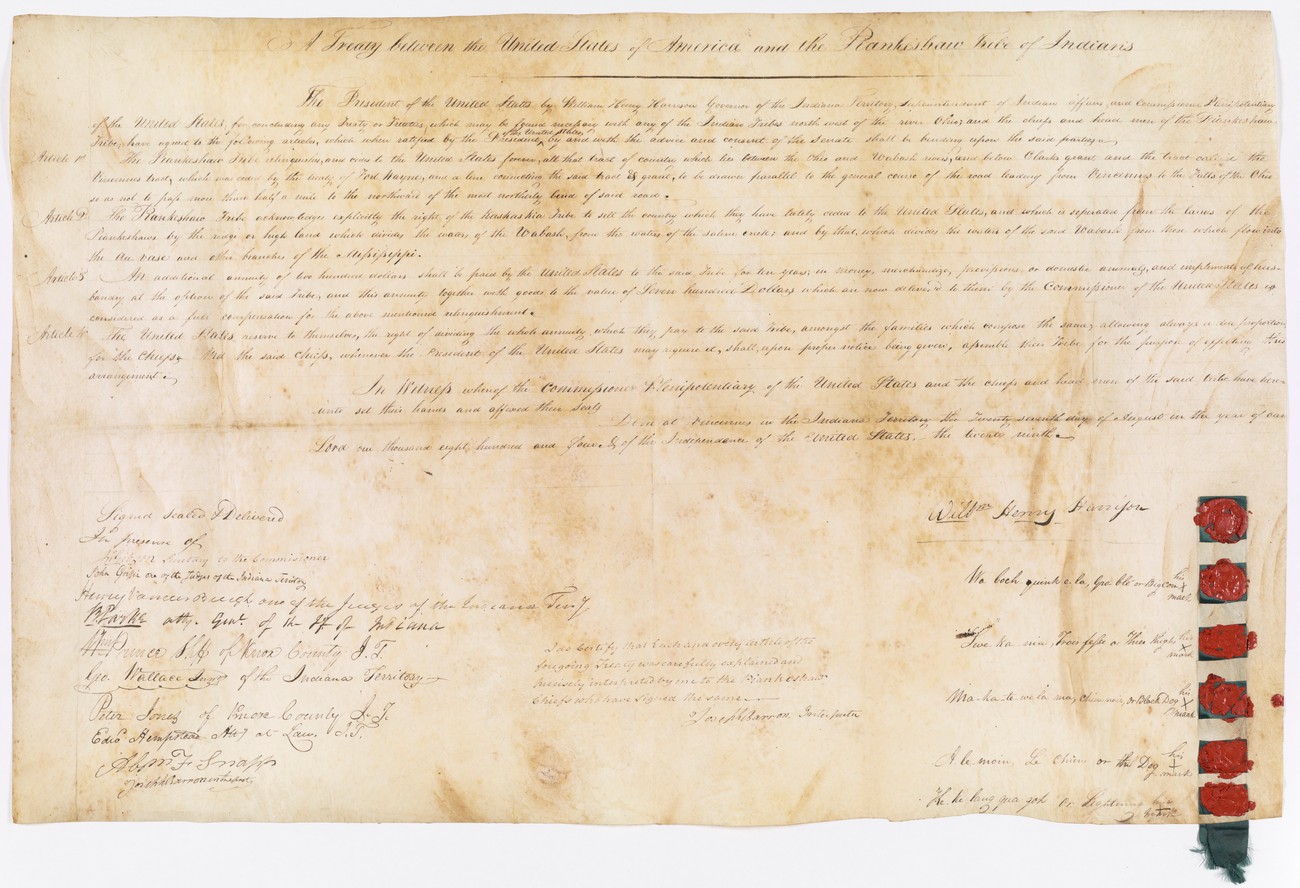 A Treaty between the United States of America and the Piankeshaw tribe of Indians
The President of the United States by William Henry Harrison Governor of the Indiana Territory, Superintendant of Indian affairs, and Commissioner Plenipotentiary
of the United States, for concluding any Treaty or Treaties, which may be found necessary with any of the Indian Tribes north west of the river Ohio; and the chiefs and head men of the Piankeshaw
Tribe, have agreed to the following articles, which when ratified by the President of the United States, by and with the advice and consent of the Senate shall be binding upon the said parties.
Article 1st The Piankeshaw Tribe relinquishes, and cedes to the United States forever, all that tract of country which lies between the Ohio and Wabash rivers, and below Clarks grant and the tract called the
Vincennes tract, which was ceded by the treaty of Fort Wayne, and a line connecting the said tract & grant, to be drawn parallel to the general course of the road leading from Vincennes to the Falls of the Ohio
so as not to pass more than half a mile to the northward of the most northerly bend of said road.
Article 2d The Piankeshaw Tribe acknowledges explicitly the right of the Kaskaskia Tribe to sell the country which they have lately ceded to the United States, and which is separated from the lands of the
Piankeshaws by the ridge or high land which divides the waters of the Wabash, from the waters of the saline creek; and by that, which divides the waters of the said Wabash from those which flow into
the Au vase and other branches of the Missisippi.
Article 3d An additional annuity of two hundred dollars shall be paid by the United States to the said Tribe for ten years, in money, merchandize, provisions, or domestic animals, and implements of hus-
bandry at the option of the said Tribe; and this annuity together with goods to the value of Seven hundred Dollars which are now deliver'd to them by the Commissioner of the United States is
considered as a full compensation for the above mentioned relinquishment.
Article 4th The United States, reserve to themselves, the right of dividing the whole annuity which they pay to the said tribe, amongst the families which compose the same; allowing always a due proportion
for the Chiefs. And the said chiefs, whenever the President of the United States may require it, shall, upon proper notice being given, assemble their Tribe for the purpose of effecting this
arrangement.
In Witness whereof the Commissioner Plenipotentiary of the United States and the chiefs and head men of the said tribe have here-
unto set their hands and affixed their seals
Done at Vincennes in the Indiana Territory the Twenty seventh day of August in the year of our
Lord one thousand eight hundred and four & of the Independence of the United States, the twenty ninth
Signed Sealed & Delivered
In presence of
Secretary to the Commissioner
John Griffin one of the Judges of the Indiana Territory
Henry Vanderburgh one of the Judges of the Indiana Terry
B. Parke atty. Genl. of the of Indiana
Wm Prince Sff of Knox County I. T.
Geo. Wallace Junr of the Indiana Territory
Peter Jones of Knox County I. T.
Edwd Hempstead Atty at Law. I. T.
Abm F. Snapp
Joseph Barron interpret
I do Certify that Each and every article of the
foregoing Treaty was carefully explained and
precisely interpreted by me to the Piankeshaw
Chiefs who have signed the same
Joseph Barron Interpreter
Willm Henry Harrison
Wa bach quink e la, Gros ble or Big Corn his X mark
his X mark
or Black Dog his X mark
Le Chien or the Dog his X mark
or Lightning his X mark